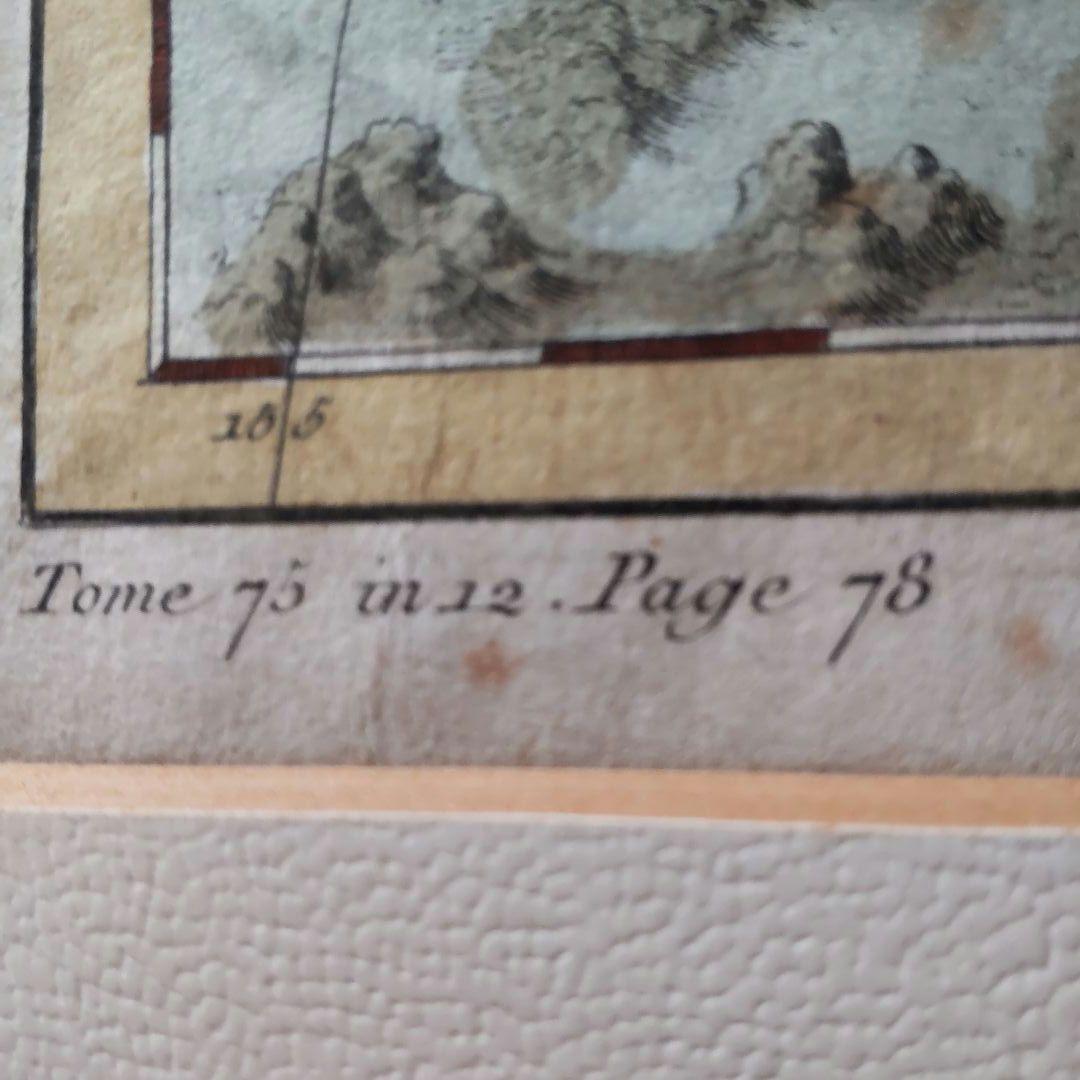 185
Tome 75 in 12. Page 78